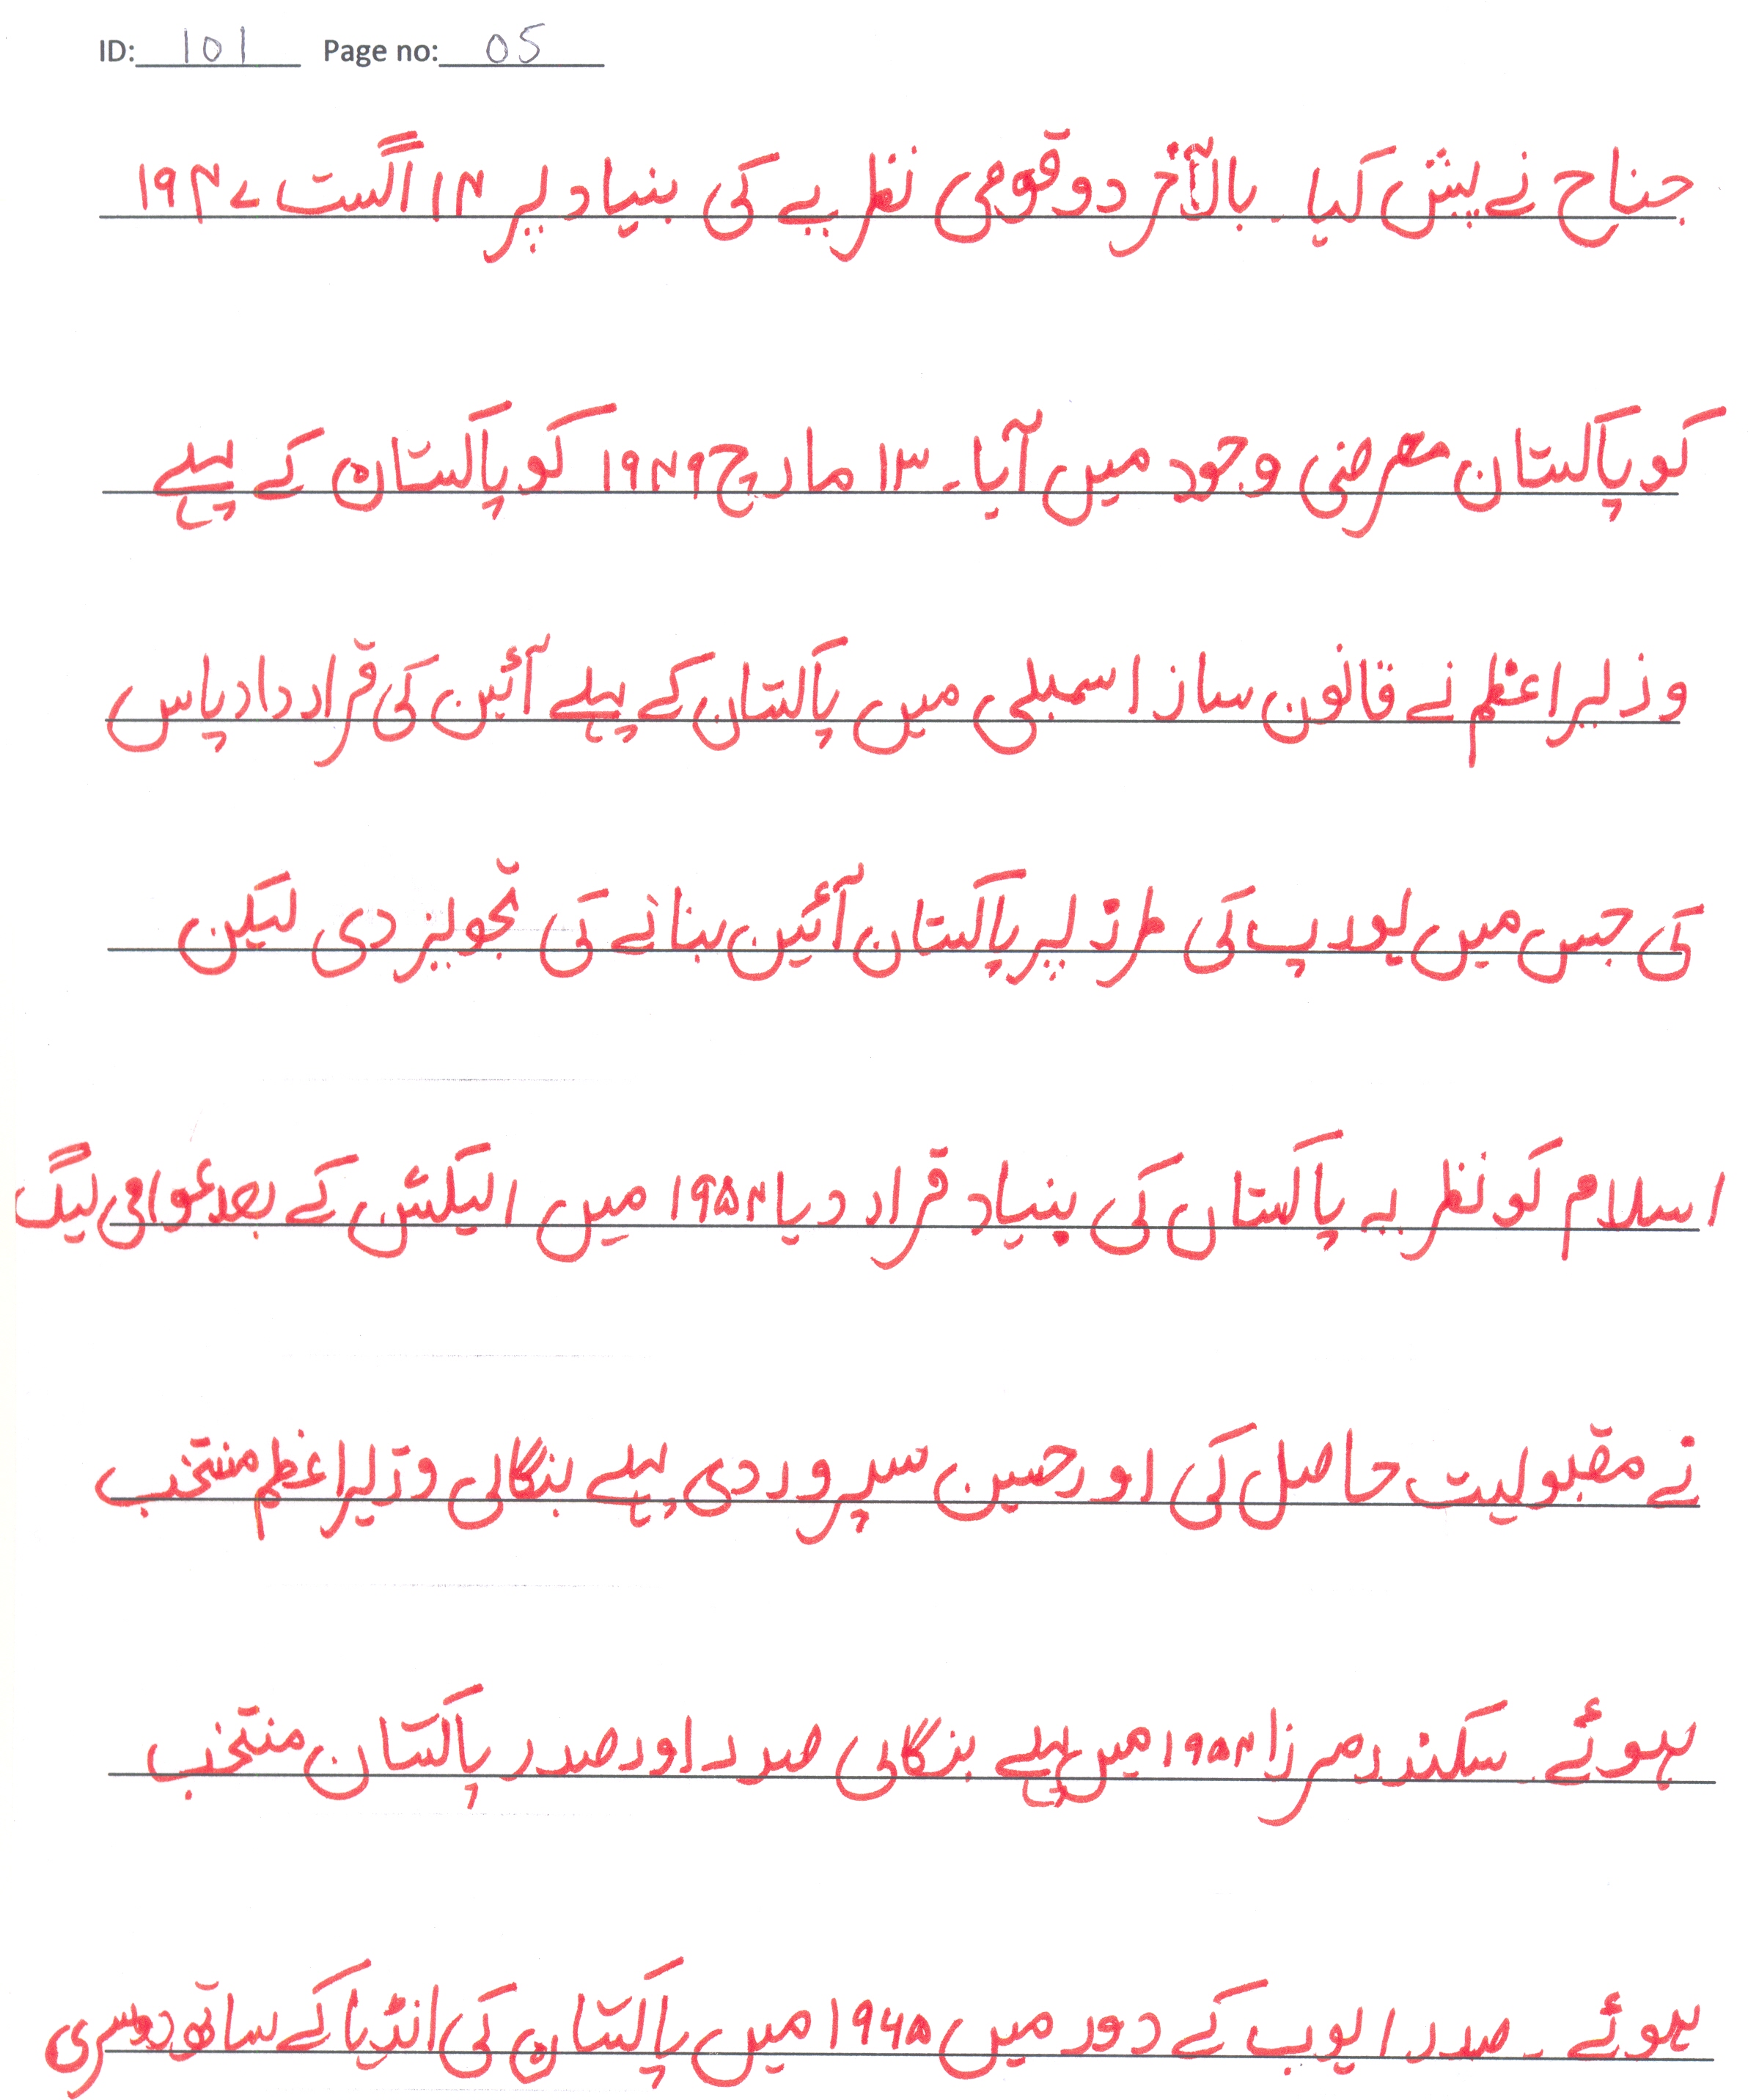 ID: 101 Page no: 05
جناح نے پیش کیا۔ بالآخر دو قومی نظریے کی بنیاد پر ۱۴ اگست ۱۹۴۷
کو پاکستان معرضی وجود میں آیا۔ ۱۳ مارچ ۱۹۴۹ کو پاکستان کے پہلے
وزیراعظم نے قانون ساز اسمبلی میں پاکستان کے پہلے آئین کی قرارداد پاس
کی جس میں یورپ کی طرز پر پاکستان آئین بنانے کی تجویز دی لیکن
اسلام کو نظریہ پاکستان کی بنیاد قرار دیا ۱۹۵۴ میں الیکشن کے بعد عوامی لیگ
نے مقبولیت حاصل کی اور حسین سہروردی پہلے بنگالی وزیراعظم منتخب
ہوئے۔ سکندر مرزا ۱۹۵۴ میں پہلے بنگالی صدر اور صدر پاکستان منتخب
ہوئے۔ صدر ایوب کے دور میں ۱۹۶۵ میں پاکستان کی انڈیا کے ساتھ دوسری